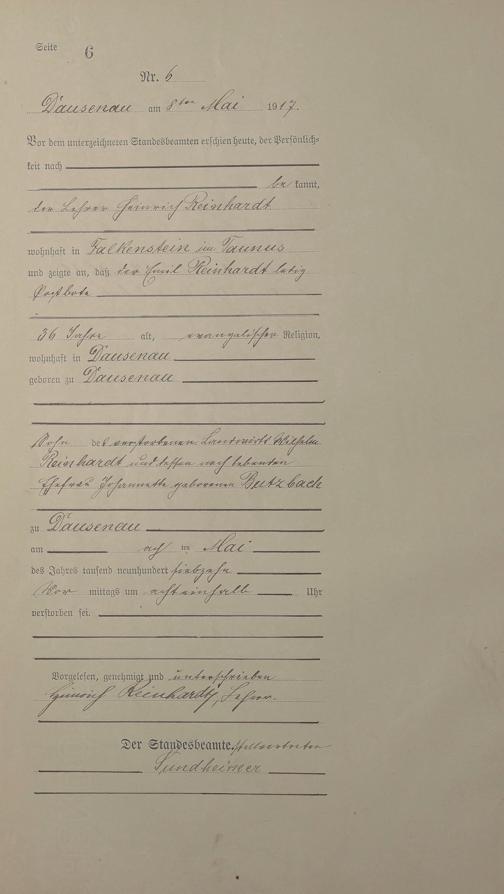 Seite 6
Nr. 6
Dausenau am 8ten Mai 1917.
Vor dem unterzeichneten Standesbeamten erschien heute, der Persönlich-
keit nach
be kannt,
der Lehrer Heinrich Reinhardt
wohnhaft in Falkenstein im Taunus
und zeigte an, daß der Emil Reinhardt ledig
Postbote
36 Jahre alt, evangelischer Religion,
wohnhaft in Dausenau
geboren zu Dausenau
Sohn des verstorbenen Landwirts Wilhelm
Reinhardt und dessen noch lebenden
Ehefrau Johannette geborenen Butzbach
zu Dausenau
am acht ten Mai
des Jahres tausend neunhundert siebzehn
Vor mittags um achteinhalb Uhr
verstorben sei.
Vorgelesen, genehmigt und unterschrieben
Heinrich Reinhardt, Lehrer.
Der Standesbeamte. stellvertreter
Sundheimer